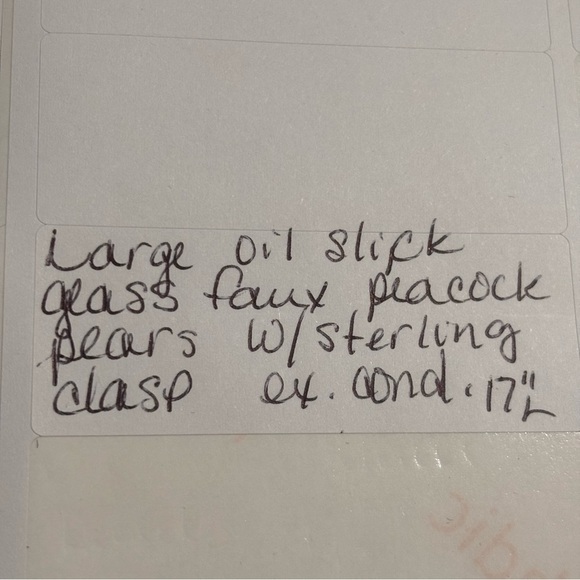 Large oil slick
glass faux peacock
pears w/sterling
clasp ex. cond. 17"L